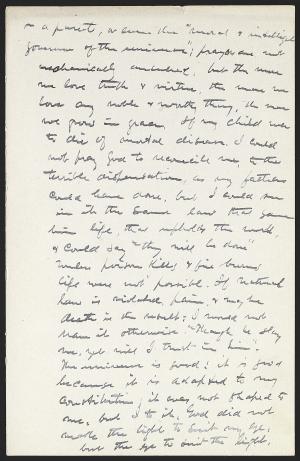 a parent, or even the "moral & intelligent
governor of the universe"; prayers are not
mechanically answered, but the more
we love truth & virtue, the more we
love any noble & worthy thing, the more
we grow in grace. If my child were
to die of mortal disease, I could
not pray God to reconcile me, to the
terrible dispensation, as my fathers
could have done, but I could see
in it the same law that gave
him life, that upholds the world,
& could say "thy will be done".
Unless poison kills & fire burns
life were not possible. If natural
law is violated, pain, & maybe
death is the result; I would not
have it otherwise. "Though he slay
me, yet will I trust in him".
The universe is good; it is good
because it is adapted to my
constitution; it was not shaped to
me, but I to it. God did not
make the light to suit my eye,
but the eye to suit the light.